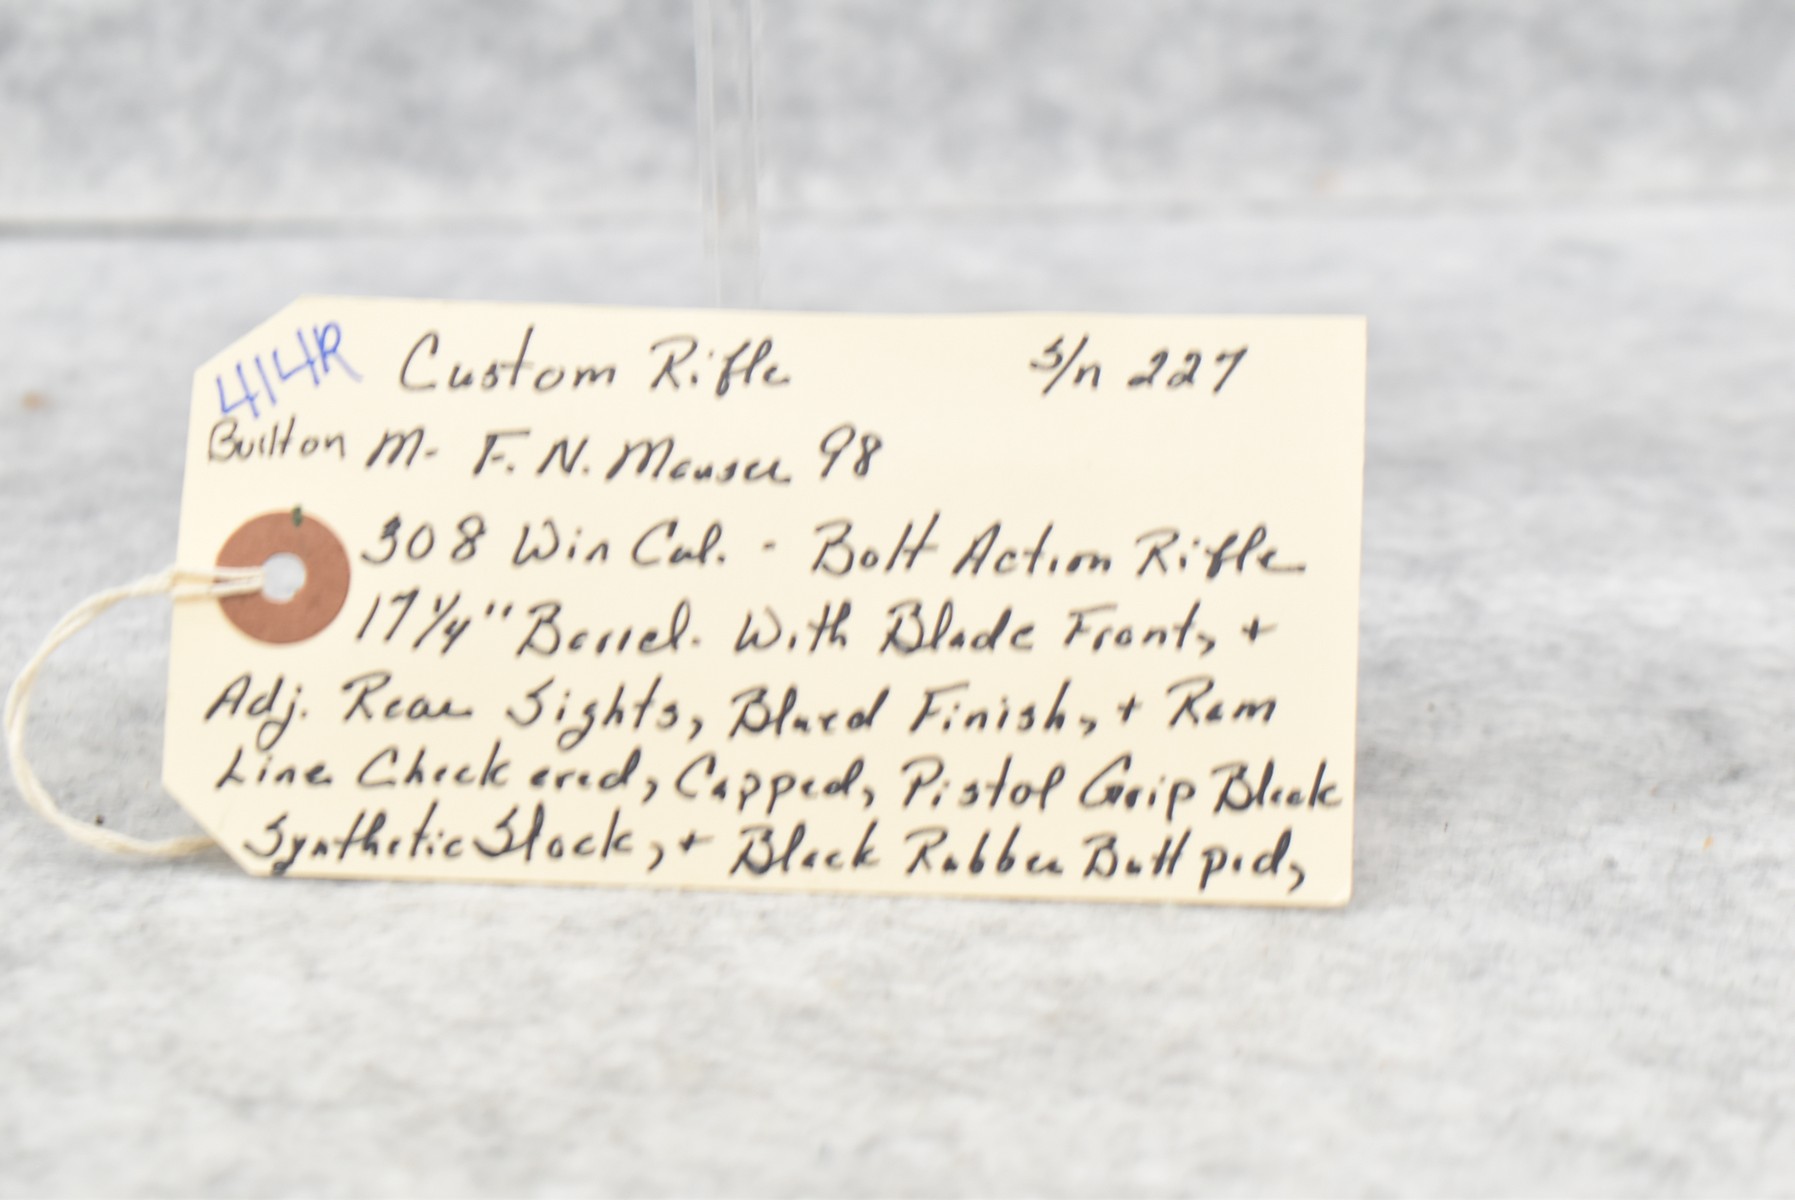 414R Custom Rifle S/n 227
Built on M- F.N. Mauser 98
308 Win Cal. - Bolt Action Rifle
17 1/4" Barrel. With Blade Front, +
Adj. Rear Sights, Blued Finish, + Ram
Line Checkered, Capped, Pistol Grip Black
Synthetic Stock, + Black Rubber Butt pad,